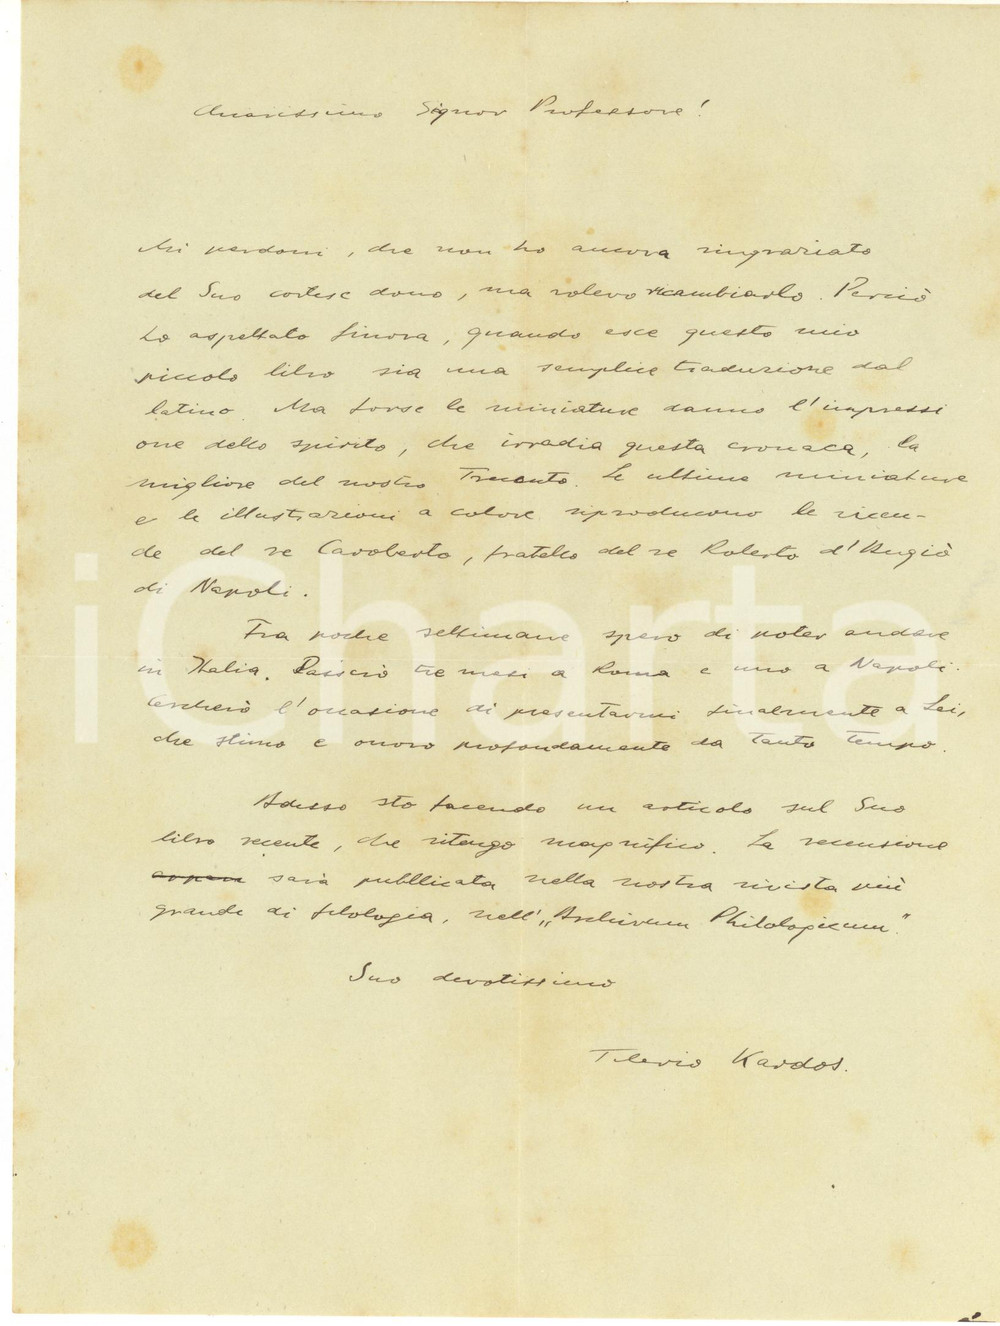 Chiarissimo Signor Professore!
Mi perdoni, che non ho ancora ringraziato
del Suo cortese dono, ma volevo ricambiarlo. Perciò
ho aspettato finora, quando esce questo mio
piccolo libro sia una semplice traduzione dal
latino. Ma forse le miniature danno l'impressi
one dello spirito, che irradia questa cronaca, la
migliore del nostro Trecento. Le ultime miniature
e le illustrazioni a colore riproducono le vicen-
de del re Caroberto, fratello del re Roberto d'Angiò
di Napoli.
Fra poche settimane spero di poter andare
in Italia. Passerò tre mesi a Roma e uno a Napoli.
Cercherò l'occasione di presentarmi finalmente a Lei,
che stimo e onoro profondamente da tanto tempo.
Adesso sto facendo un articolo sul Suo
libro recente, che ritengo magnifico. La recensione
sarà pubblicata nella nostra rivista più
grande di filologia, nell' „Archivum Philologicum".
Suo devotissimo
Tiberio Kardos.
iCharta